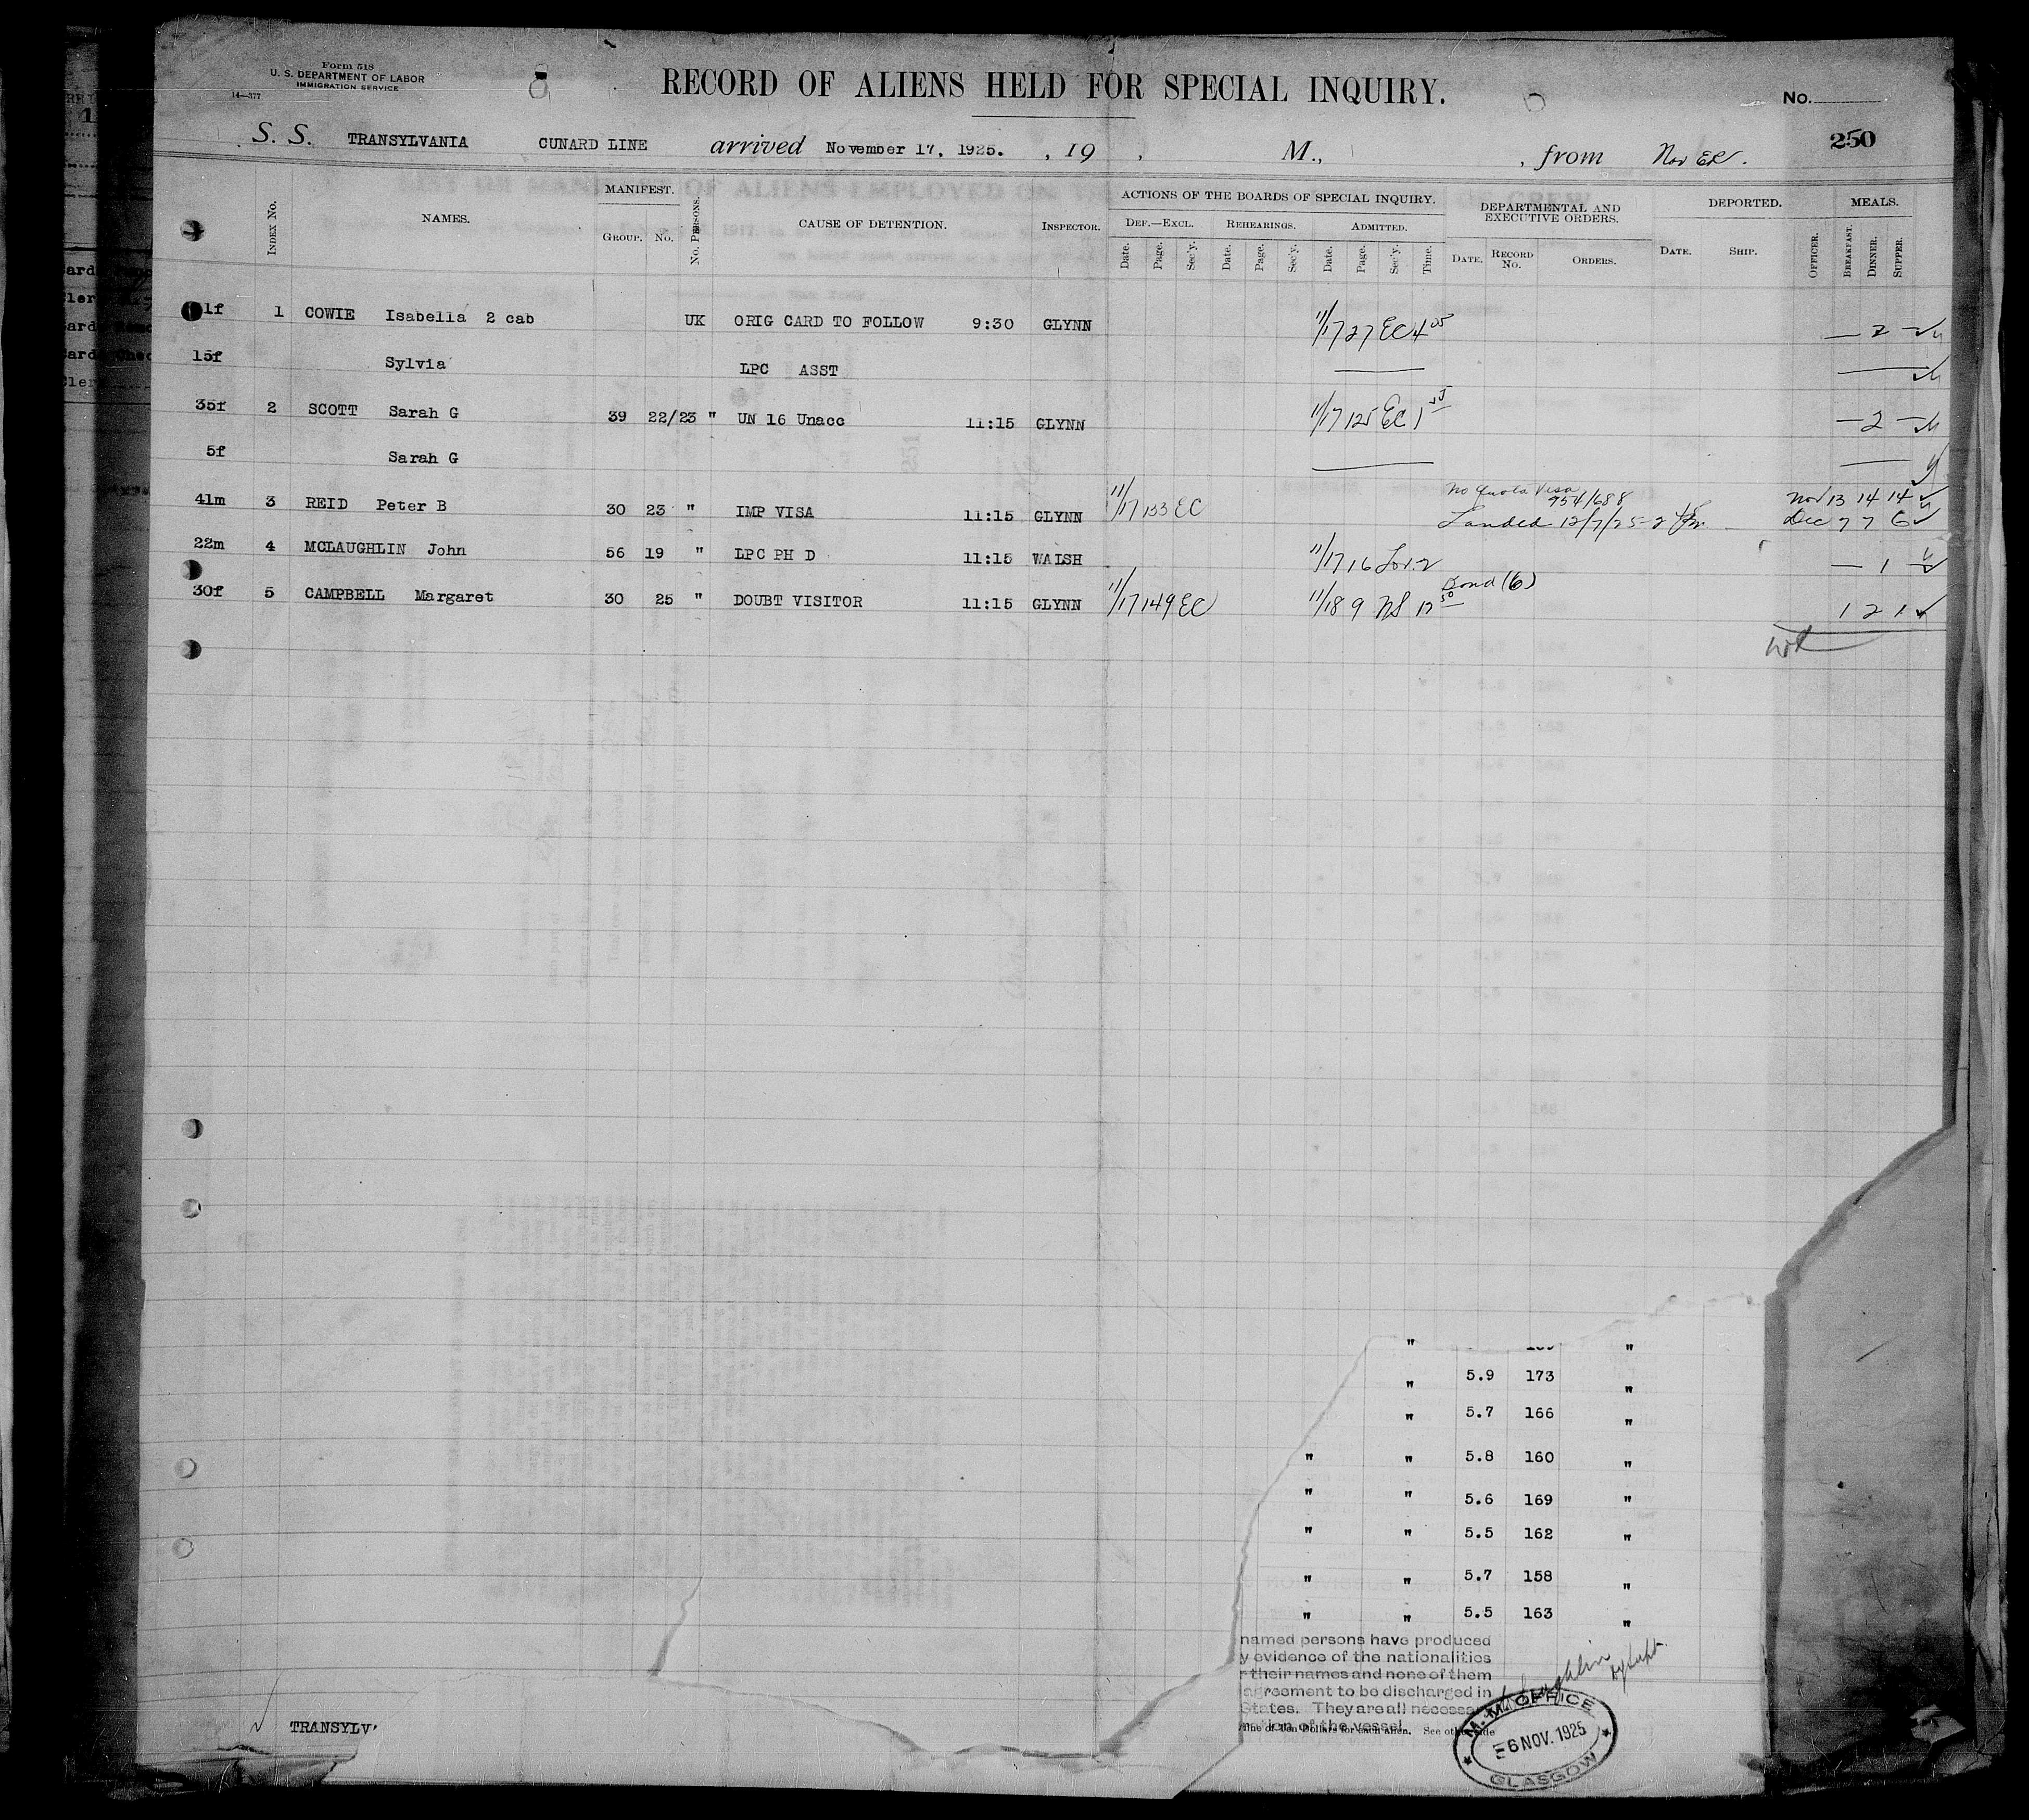 Form 518
U. S. DEPARTMENT OF LABOR
IMMIGRATION SERVICE
14—377
RECORD OF ALIENS HELD FOR SPECIAL INQUIRY.
No.
250
S. S. TRANSYLVANIA CUNARD LINE arrived November 17, 1925. , 19 , M., , from
INDEX No. NAMES. MANIFEST. GROUP. No. No. PERSONS. CAUSE OF DETENTION. INSPECTOR. ACTIONS OF THE BOARDS OF SPECIAL INQUIRY. DEPARTMENTAL AND EXECUTIVE ORDERS. DEPORTED. MEALS.
DEF.—EXCL. REHEARINGS. ADMITTED.
Date. Page. Sec'y. Date. Page. Sec'y. Date. Page. Sec'y. Time. DATE. RECORD No. ORDERS. DATE. SHIP. OFFICER. BREAKFAST. DINNER. SUPPER.
1f 1 COWIE Isabella 2 cab UK ORIG CARD TO FOLLOW 9:30 GLYNN 11/17 27 EC 4 — 2 —
15f Sylvia LPC ASST
35f 2 SCOTT Sarah G 39 22/23 " UN 16 Unacc 11:15 GLYNN 11/17 125 EC 1 — 2 —
5f Sarah G
No Quota Visa
954/688
41m 3 REID Peter B 30 23 " IMP VISA 11:15 GLYNN 11/17 133 EC Landed 12/7/25 Nov 13 14 14
Dec 7 7 6
22m 4 MCLAUGHLIN John 56 19 " LPC PH D 11:15 WALSH 11/17 16 — 1
Bond (6)
30f 5 CAMPBELL Margaret 30 25 " DOUBT VISITOR 11:15 GLYNN 11/17 149 EC 11/18 9 NS 12 50 1 2 1
" "
" 5.9 173 "
" 5.7 166 "
" " 5.8 160 "
" " 5.6 169 "
" " 5.5 162 "
" " 5.7 158 "
" " 5.5 163 "
named persons have produced
y evidence of the nationalities
r their names and none of them
agreement to be discharged in
States. They are all necess
tion of the vessel
TRANSYLV
of Ten Dollars for each Alien. See other side
M. M. OFFICE
6 NOV. 1925
GLASGOW